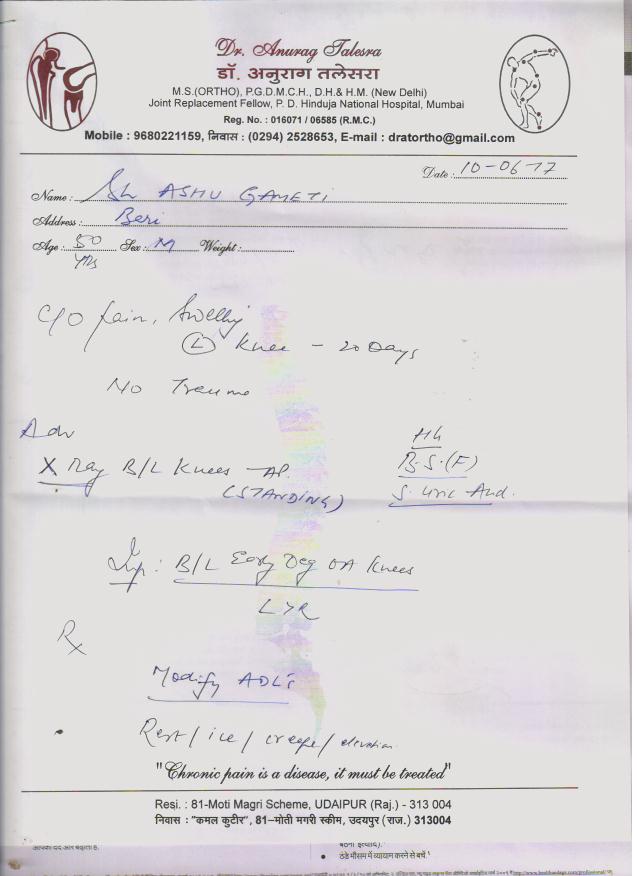 Dr. Anurag Talesra
डॉ. अनुराग तलेसरा
M.S.(ORTHO), P.G.D.M.C.H., D.H.& H.M. (New Delhi)
Joint Replacement Fellow, P. D. Hinduja National Hospital, Mumbai
Reg. No. : 016071 / 06585 (R.M.C.)
Mobile : 9680221159, निवास : (0294) 2528653, E-mail : dratortho@gmail.com
Date : 10-06-17
Name : Sh ASHU GAMETI
Address : Beri
Age : 50 yrs Sex : M Weight :
C/O Pain, Swelling
(L) Knee - 20 Days
No Trauma
Adv
X Ray B/L Knees - AP.
(STANDING)
Hb
B.S.(F)
S. Uric Acid.
Imp : B/L Early Deg OA Knees
L > R
Rx
Modify ADL's
Rest / ice / crepe / elevation
"Chronic pain is a disease, it must be treated"
Resi. : 81-Moti Magri Scheme, UDAIPUR (Raj.) - 313 004
निवास : "कमल कुटीर", 81–मोती मगरी स्कीम, उदयपुर (राज.) 313004
• ठंडे मौसम में व्यायाम करने से बचें.